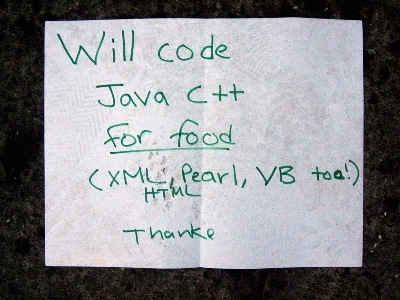 Will code
Java C++
for food
(XML, Pearl, VB too!)
HTML
Thanks